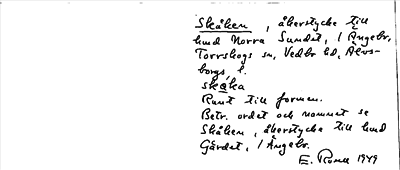 Skåken, åkerstycke till
lund Norra Sundet, i Ångebr,
Torrskogs sn, Vedbo hd, Älvs-
borgs l.
skåka
Runt till formen.
Betr. ordet och namnet se
Skåken, åkerstycke till lund
Gärdet, i Ångebr.
E. Rome 1949